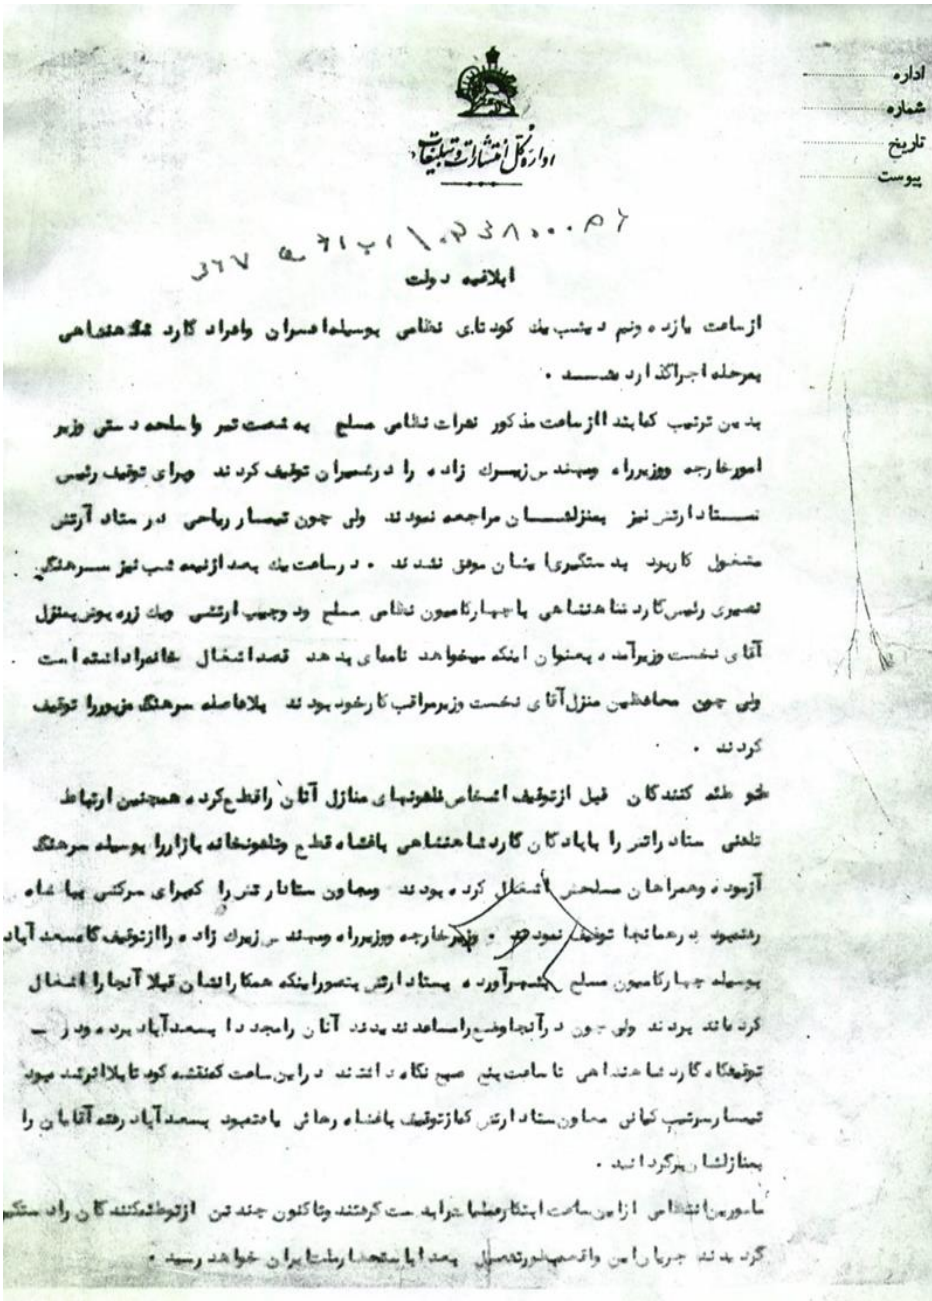 اداره
شماره
تاریخ
پیوست
اداره کل انتشارات و تبلیغات
ابلاغیه دولت
از ساعت یازده ونیم دیشب یك کودتای نظامی بوسیله افسران وافراد گارد شاهنشاهی
بمرحله اجراگذارده شد .
بدین ترتیب که ابتدا از ساعت مذکور نفرات نظامی مسلح به شصت تیر واسلحه دستی وزیر
امورخارجه ووزیرراه ومهندس زیرك زاده را درشمیران توقیف کردند وبرای توقیف رئیس
ستاد ارتش نیز بمنزلشان مراجعه نمودند ولی چون تیمسار ریاحی در ستاد آرتش
مشغول کاربود بدستگیری ایشان موفق نشدند . درساعت یك بعد ازنیمه شب نیز سرهنگ
نصیری رئیس گارد شاهنشاهی با چهارکامیون نظامی مسلح ودوجیپ ارتشی ویك زره پوش بمنزل
آقای نخست وزیرآمده بعنوان اینکه میخواهد نامه‌ای بدهد قصد اشغال خانه‌را داشته است
ولی چون محافظین منزل آقای نخست وزیرمراقب کارخود بودند بلافاصله سرهنگ مزبوررا توقیف
کردند .
توطئه کنندگان قبل ازتوقیف اشخاص تلفونهای منازل آنان راقطع کرده همچنین ارتباط
تلفنی ستاد راتش را باپادگان گارد شاهنشاهی باغشاه قطع وتلفونخانه بازاررا بوسیله سرهنگ
آزموده وهمراهان مسلحش اشغال کرده بودند ومعاون ستاد ارتش را که برای سرکشی بباغشاه
رفته‌بود درهمانجا توقیف نمودند . وزیرخارجه ووزیرراه ومهندس زیرك زاده را ازتوقیف گاه سعدآباد
بوسیله چهارکامیون مسلح بشهرآورده بستاد ارتش بتصوراینکه همکارانشان قبلا آنجا را اشغال
کرده‌اند بردند ولی چون درآنجا وضع را مساعد ندیدند آنان رامجددا بسعدآباد برده ودر
توقیفگاه گارد شاهنشاهی تا ساعت پنج صبح نگاه داشتند دراین ساعت که نقشه کودتا بلااثرشده بود
تیمسارسرتیپ کیانی معاون ستاد ارتش که ازتوقیف باغشاه رهائی یافته‌بود بسعدآباد رفته آقایان را
بمنازلشان برگردانید .
مامورین انتظامی ازاین ساعت ابتکارعملیات رابدست گرفتند وتاکنون چند تن ازتوطئه‌کنندگان رادستگیر
کردیدند جریان این واقعه بطورتفصیل بعدا باستحضارملت ایران خواهد رسید .